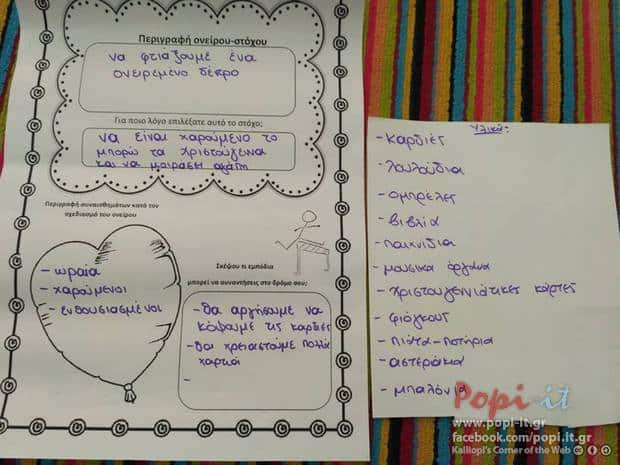 Περιγραφή ονείρου-στόχου
να φτιάξουμε ένα
ονειρεμενο δέντρο
Για ποιο λόγο επιλέξατε αυτό το στόχο;
να είναι χαρούμενο το
μπορώ τα Χριστούγεννα
και να μοιρασει αγάπη
Περιγραφή συναισθημάτων κατά τον
σχεδιασμό του ονείρου
- ωραία
- χαρούμενοι
- ενθουσιασμένοι
Σκέψου τι εμπόδια
μπορεί να συναντήσεις στο δρόμο σου;
- θα αργήσουμε να
κόψουμε τις καρδιές
- θα χρειαστούμε πολλά
χαρτιά
-
Υλικά:
- καρδιές
- λουλούδια
- ομπρελες
- βιβλία
- παιχνίδια
- μουσικα όργανα
- χριστουγεννιάτικες κάρτες
- φιόγκους
- πιάτα-ποτήρια
- αστεράκια
- μπαλόνια
Popi-it
www.popi-it.gr
facebook.com/popi.it.gr
Kalliopi's Corner of the Web